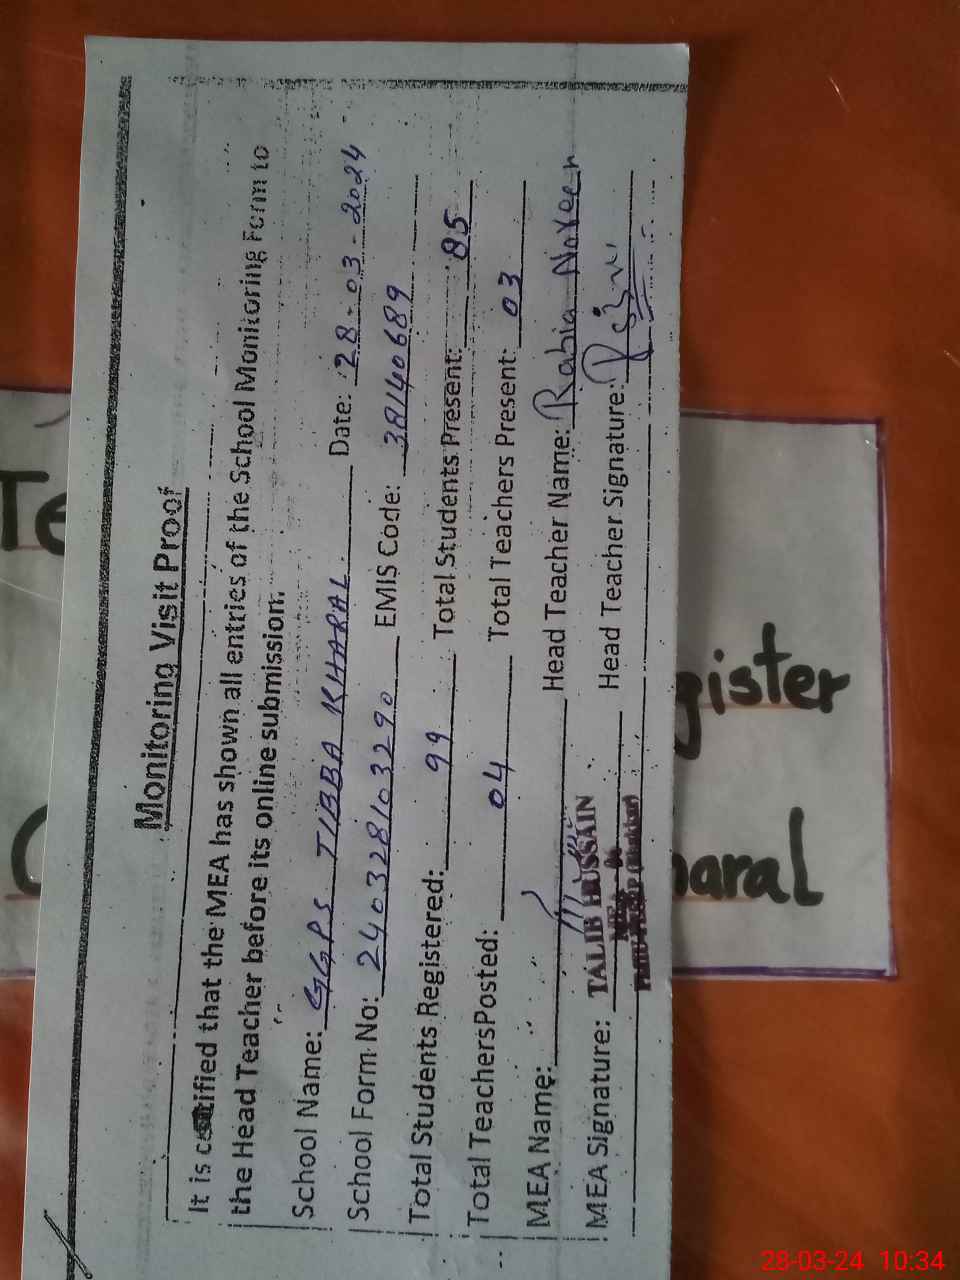 Monitoring Visit Proof
It is certified that the MEA has shown all entries of the School Monitoring Form to
the Head Teacher before its online submission.
School Name: GGPS TIBBA KHARAL Date: 28-03-2024
School Form No: 240328103290 EMIS Code: 38140689
Total Students Registered: 99 Total Students Present: 85
Total Teachers Posted: 04 Total Teachers Present: 03
MEA Name: Head Teacher Name: Rabia Noreen
MEA Signature: TALIB HUSSAIN Head Teacher Signature:
Te
gister
haral
28-03-24 10:34